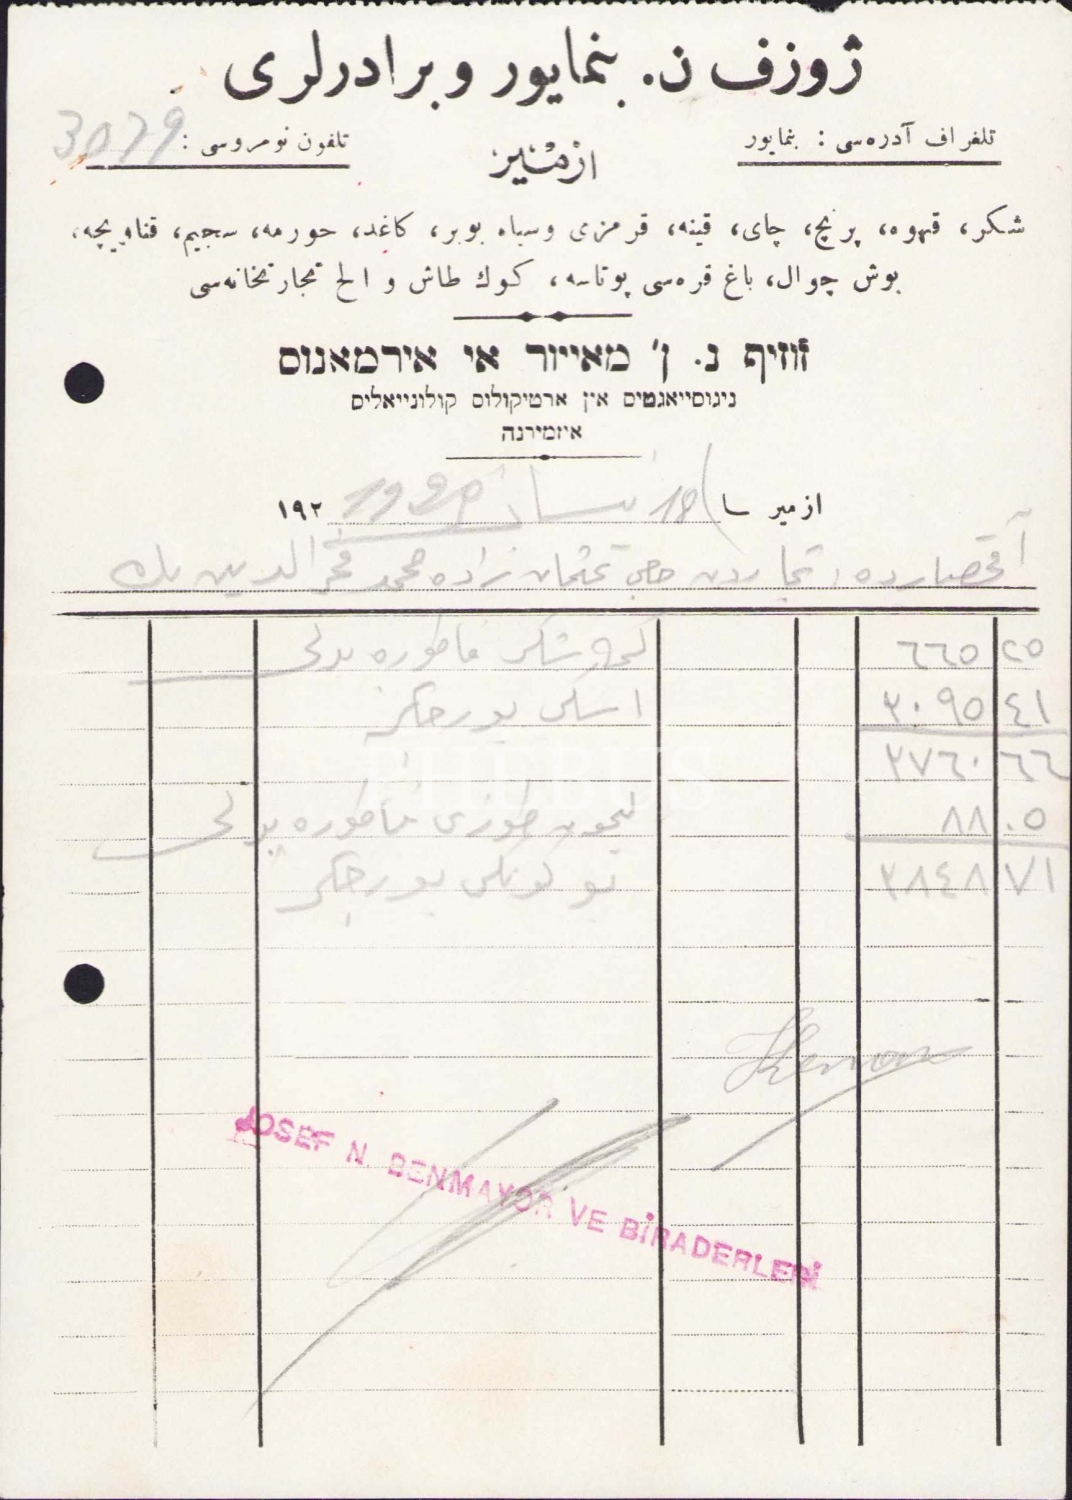 ژوزف ن. بنمايور و برادرلری
تلغراف آدره‌سی : بنمايور
ازمير
تلفون نومروسی : 3079
شكر، قهوه، پرنج، چای، قينه، قرمزی وسياه بوبر، كاغد، حورمه، سجيم، قناويچه،
بوش چوال، باغ قره‌سی پوتاسه، كوك طاش و الخ تجارتخانه‌سی
זוזיף נ. ן' מאייור אי אירמאנוס
ניגוסייאנטיס אין ארטיקולוס קולונייאליס
איזמירנה
ازمير 18 نيسان ١٩٢
آقحصارده تجاردن حاجی عثمان زاده محمد فخرالدين بك
شكر فاطوره بدلی ٦٦٥ ٢٥
اسكی بورجكز ٣٠٩٥ ٤١
٣٧٦٠ ٦٦
فاطوره بدلی ٨٨ ٠٥
بو كونكی بورجكز ٣٨٤٨ ٧١
JOSEF N. BENMAYOR VE BİRADERLERİ